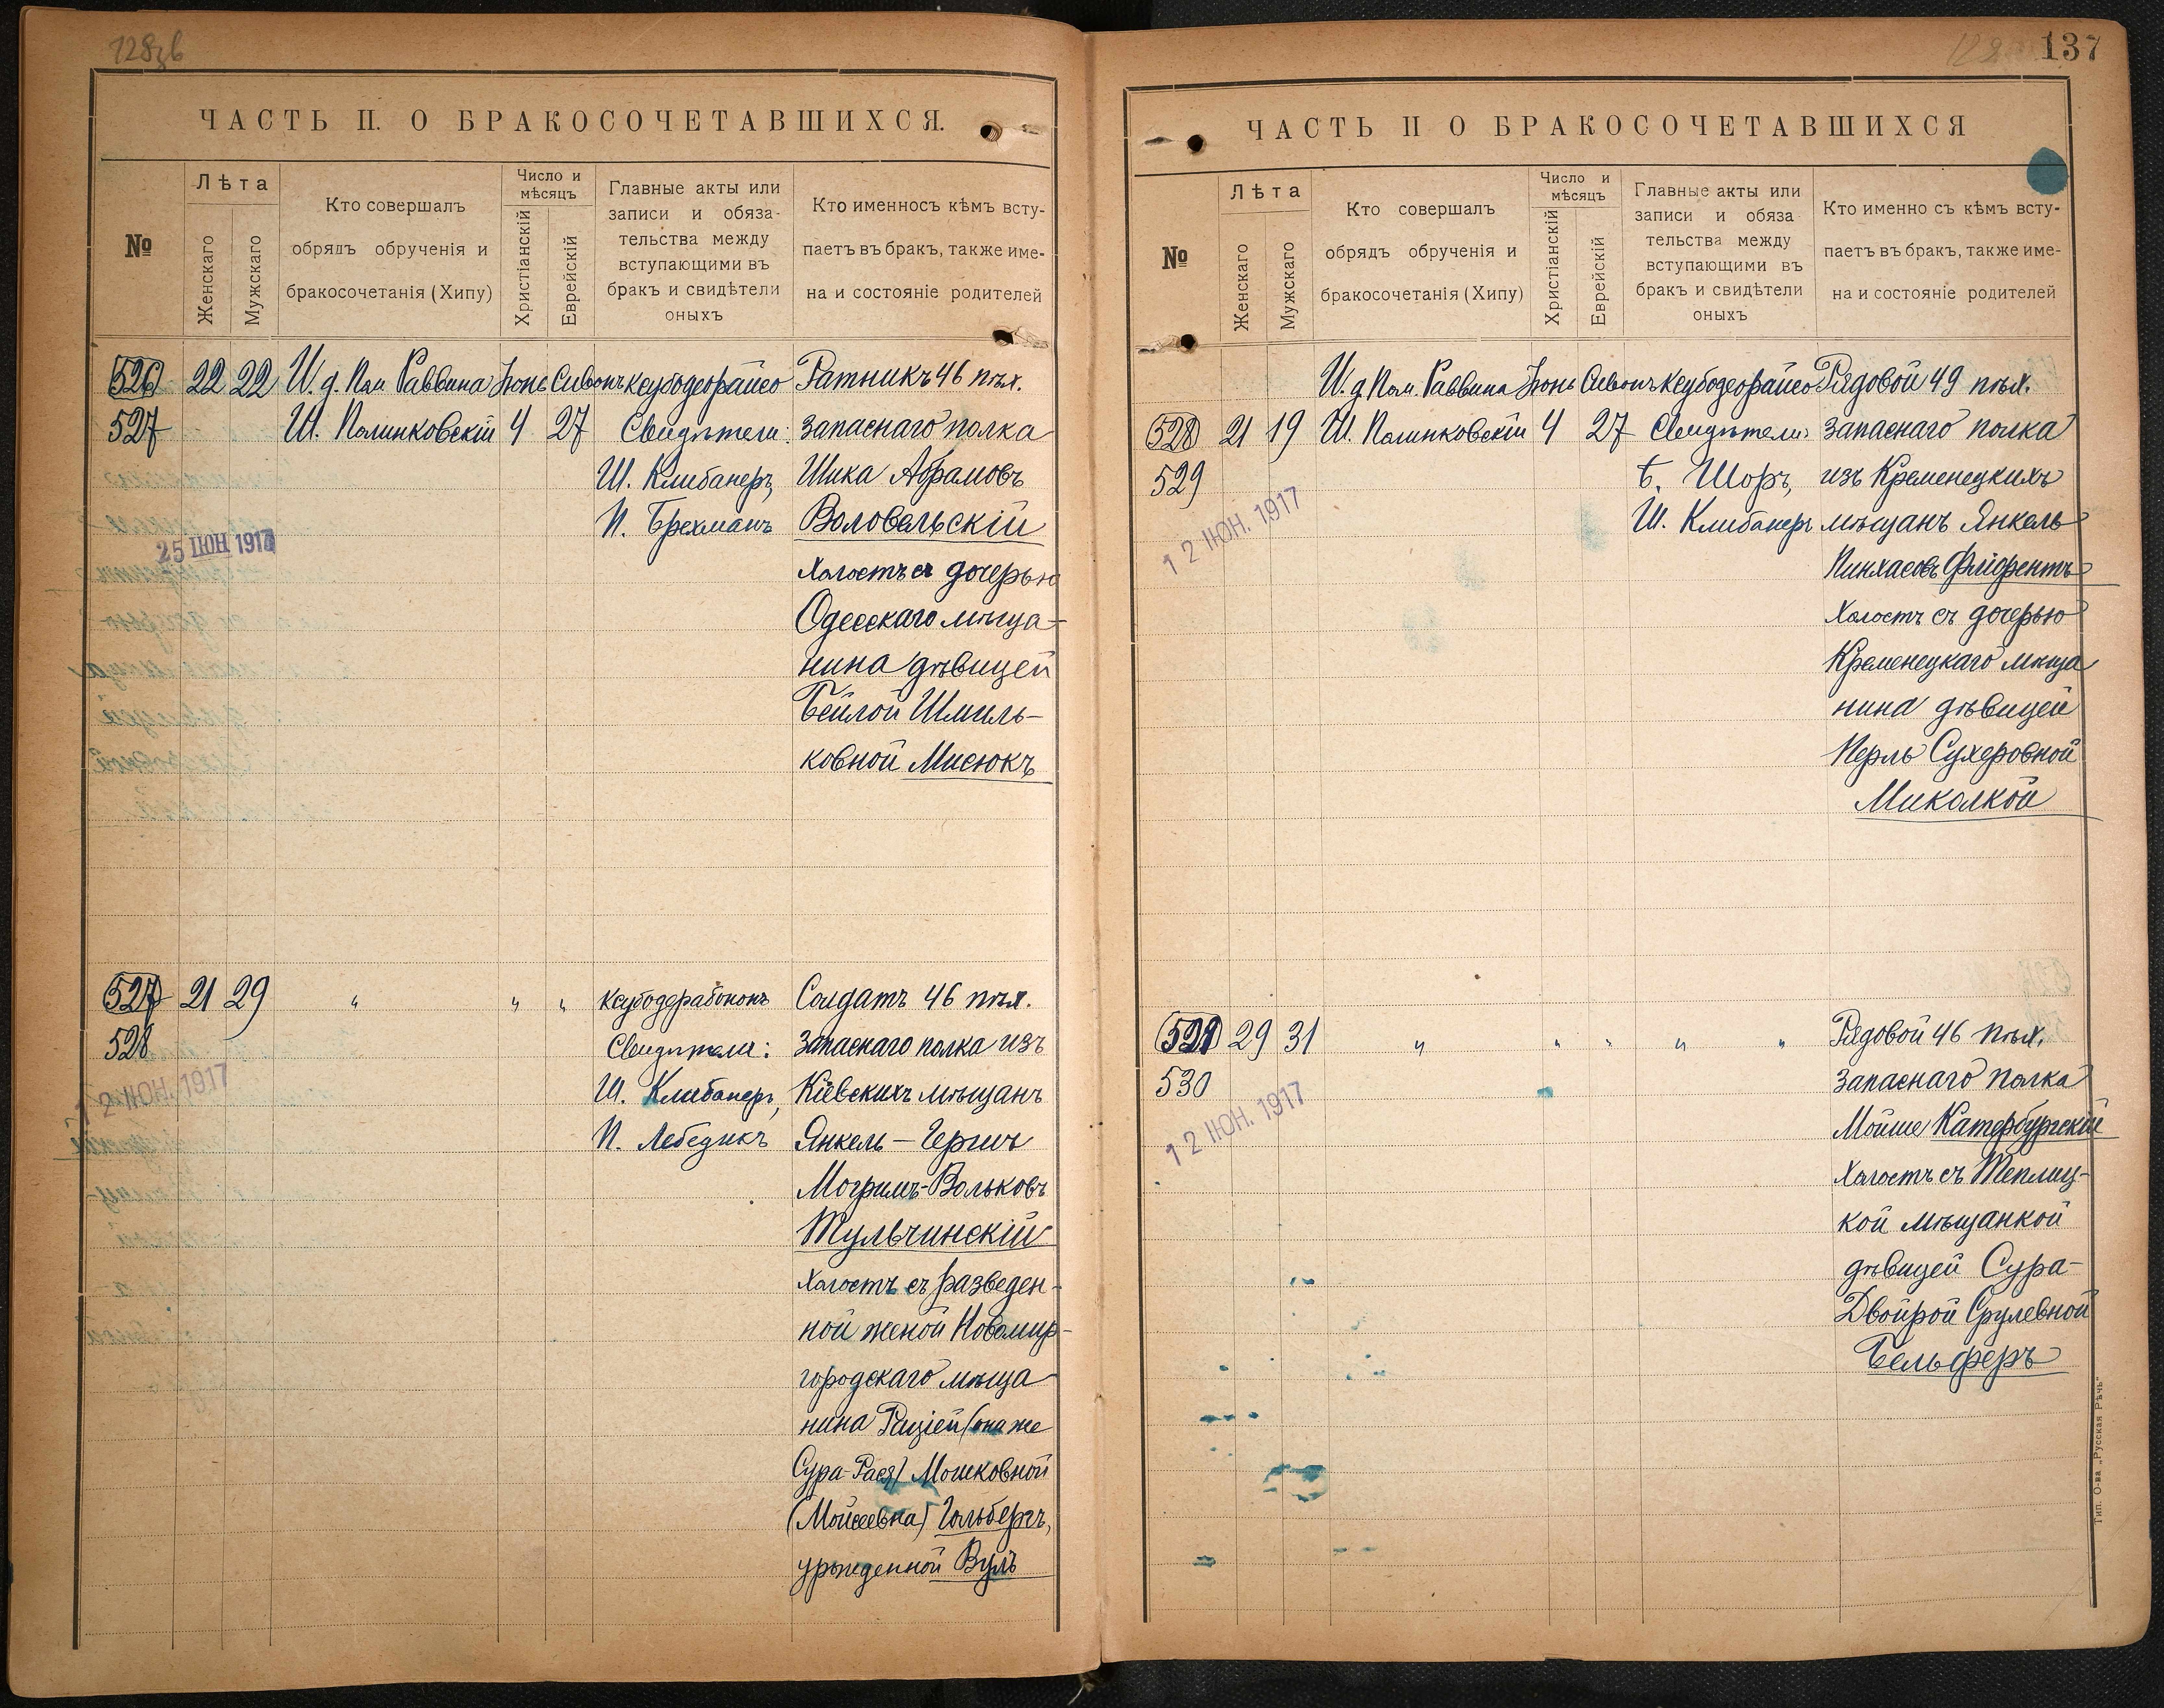 128зв
ЧАСТЬ II. О БРАКОСОЧЕТАВШИХСЯ.
№
Лѣта
Женскаго
Мужскаго
Кто совершалъ
обрядъ обрученія и
бракосочетанія (Хипу)
Число и
мѣсяцъ
Христіанскій
Еврейскій
Главные акты или
записи и обяза-
тельства между
вступающими въ
бракъ и свидѣтели
оныхъ
Кто именносъ кѣмъ всту-
паетъ въ бракъ, также име-
на и состояніе родителей
526 22 22 И. д. Пом Раввина Іюнь Сивонъ Ксубодеорайсо Ратникъ 46 пѣх.
527 Ш. Полинковскій 4 27 Свидѣтели: запаснаго полка
Ш. Клибанеръ, Шика Абрамовъ
П. Брехманъ Воловельскій
25 ІЮН 1917
Холостъ съ дочерью
Одесскаго мѣща-
нина дѣвицей
Бейлой Шмиль-
ковной Мисюкъ
527 21 29 " " " Ксубодерабононъ Солдатъ 46 пѣх.
528 Свидѣтели: Запаснаго полка изъ
12 ІЮН. 1917
Ш. Клибанеръ, Кіевскихъ мѣщанъ
П. Лебедикъ Янкель-Гершъ
Могрилъ-Вольковъ
Тульчинскій
Холостъ съ разведен-
ной женой Новомир-
городскаго мѣща-
нина Рицей (она же
Сура-Рася) Мошковной
(Мойсеевна) Гольбергъ,
урожденной Вулъ
137
ЧАСТЬ II О БРАКОСОЧЕТАВШИХСЯ
№
Лѣта
Женскаго
Мужскаго
Кто совершалъ
обрядъ обрученія и
бракосочетанія (Хипу)
Число и
мѣсяцъ
Христіанскій
Еврейскій
Главные акты или
записи и обяза
тельства между
вступающими въ
бракъ и свидѣтели
оныхъ
Кто именно съ кѣмъ всту-
паетъ въ бракъ, также име-
на и состояніе родителей
И. д. Пом. Раввина Іюнь Сивонъ Ксубодеорайсо Рядовой 49 пѣх.
528 21 19 Ш. Полинковскій 4 27 Свидѣтели: запаснаго полка
529 Б. Шоръ, изъ Кременецкихъ
12 ІЮН. 1917
Ш. Клибанеръ мѣщанъ Янкель
Пинхасовъ Фліорентъ
Холостъ съ дочерью
Кременецкаго мѣща
нина дѣвицей
Перль Сухеровной
Миколкой
529 29 31 " " " " " Рядовой 46 пѣх.
530 Запаснаго полка
12 ІЮН. 1917
Мойше Катербургскій
Холостъ съ Теплиц-
кой мѣщанкой
дѣвицей Сура-
Двойрой Срулевной
Бельферъ
Тип. О-ва „Русская Рѣчь"